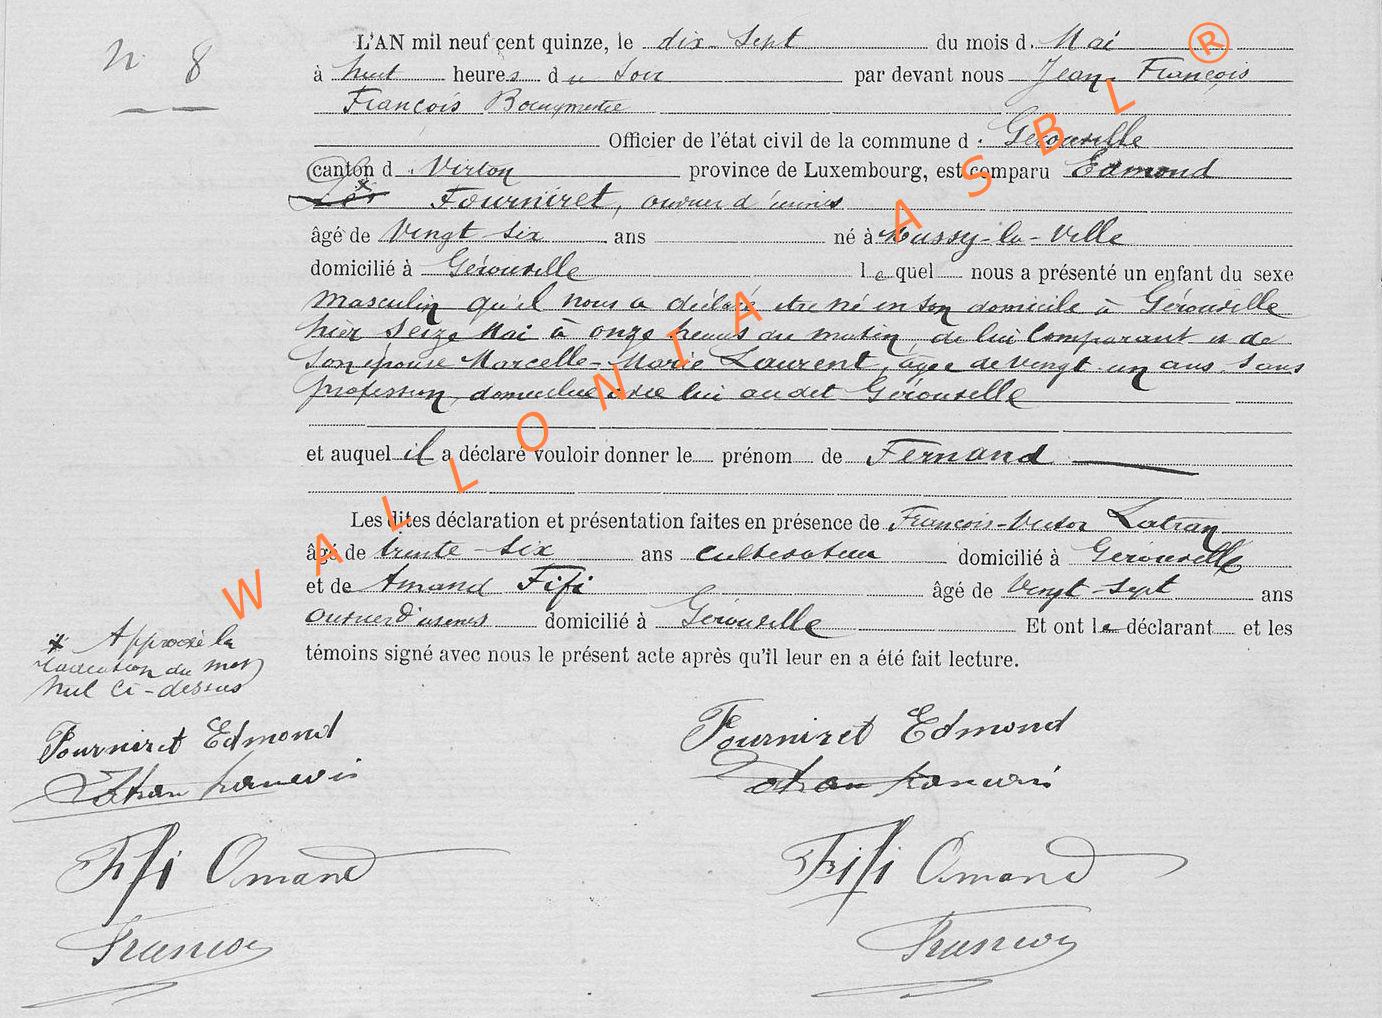 N° 8
L'AN mil neuf cent quinze, le dix-sept du mois d. Mai
à huit heures du Soir par devant nous Jean-François
François Bourgmestre
Officier de l'état civil de la commune d. Gérouville
canton d. Virton province de Luxembourg, est comparu Edmond
Fourniret, ouvrier d'usines
âgé de Vingt six ans né à Mussy-la-Ville
domicilié à Gérouville lequel nous a présenté un enfant du sexe
masculin qu'il nous a déclaré être né en son domicile à Gérouville
hier seize Mai à onze heures du matin, de lui Comparant et de
Son épouse Marcelle-Marie Laurent, âgée de vingt-un ans, sans
profession, domiciliée avec lui audit Gérouville
et auquel il a déclaré vouloir donner le prénom de Fernand
Les dites déclaration et présentation faites en présence de François-Victor Latran
âgé de trente-six ans cultivateur domicilié à Gérouville
et de Amand Fifi âgé de Vingt-sept ans
ouvrier d'usines domicilié à Gérouville Et ont le déclarant et les
témoins signé avec nous le présent acte après qu'il leur en a été fait lecture.
* Approuvé la
radiation du mot
nul ci-dessus
Fourniret Edmond Fourniret Edmond
Fifi Amand Fifi Amand
François François
WALLONIA ASBL ®